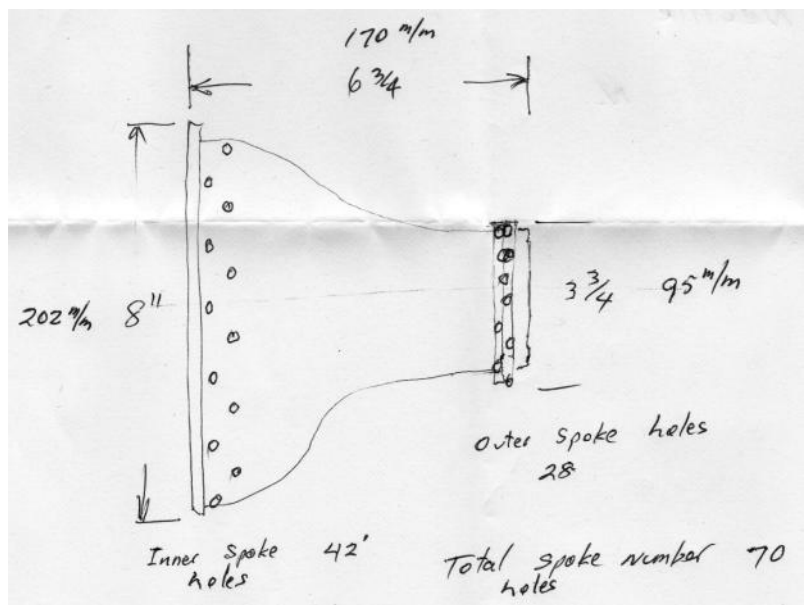 170 m/m
6 3/4
202 m/m 8"
3 3/4 95 m/m
Outer Spoke holes
28
Inner Spoke 42'
holes
Total spoke number 70
holes